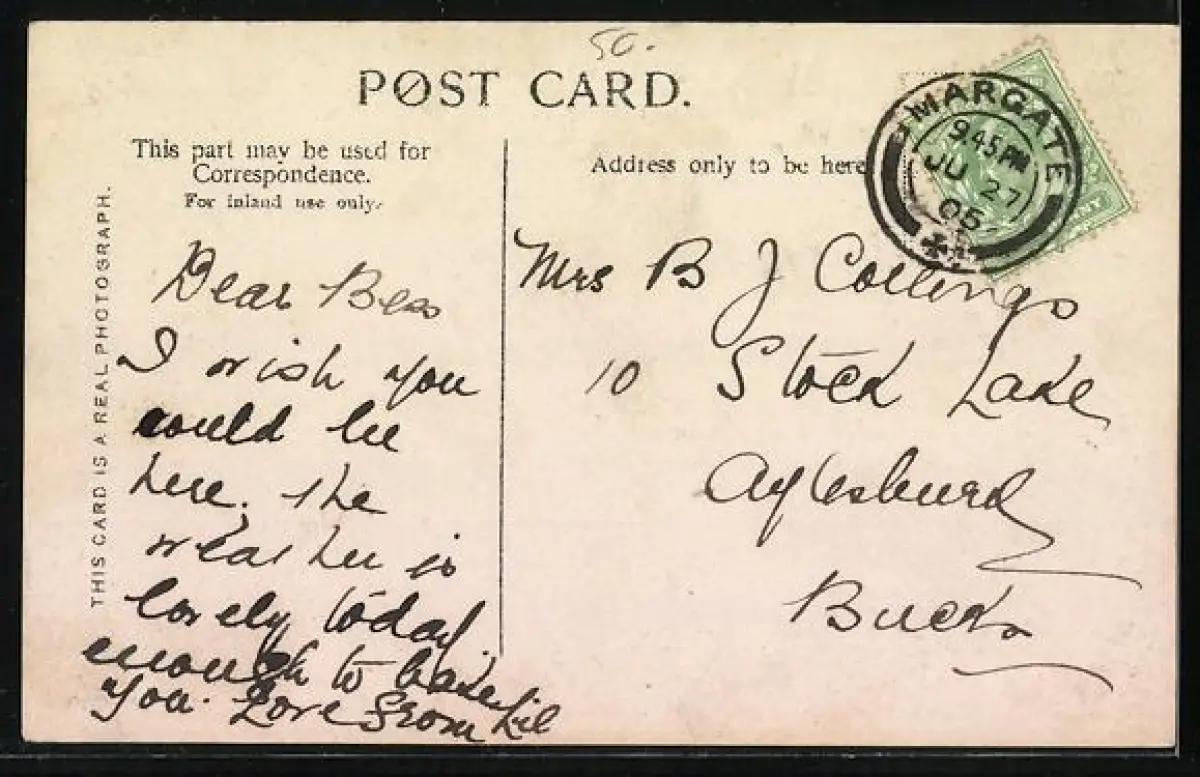 50.
POST CARD.
This part may be used for
Correspondence.
For inland use only.
Address only to be here
THIS CARD IS A REAL PHOTOGRAPH.
MARGATE
9.45PM
JU 27
05
NNY
Dear Bess
I wish you
could be
here. The
weather is
lovely today
enough to bake
you. Love from Lil
Mrs B J Collings
10 Stock Lake
Aylesbury
Bucks